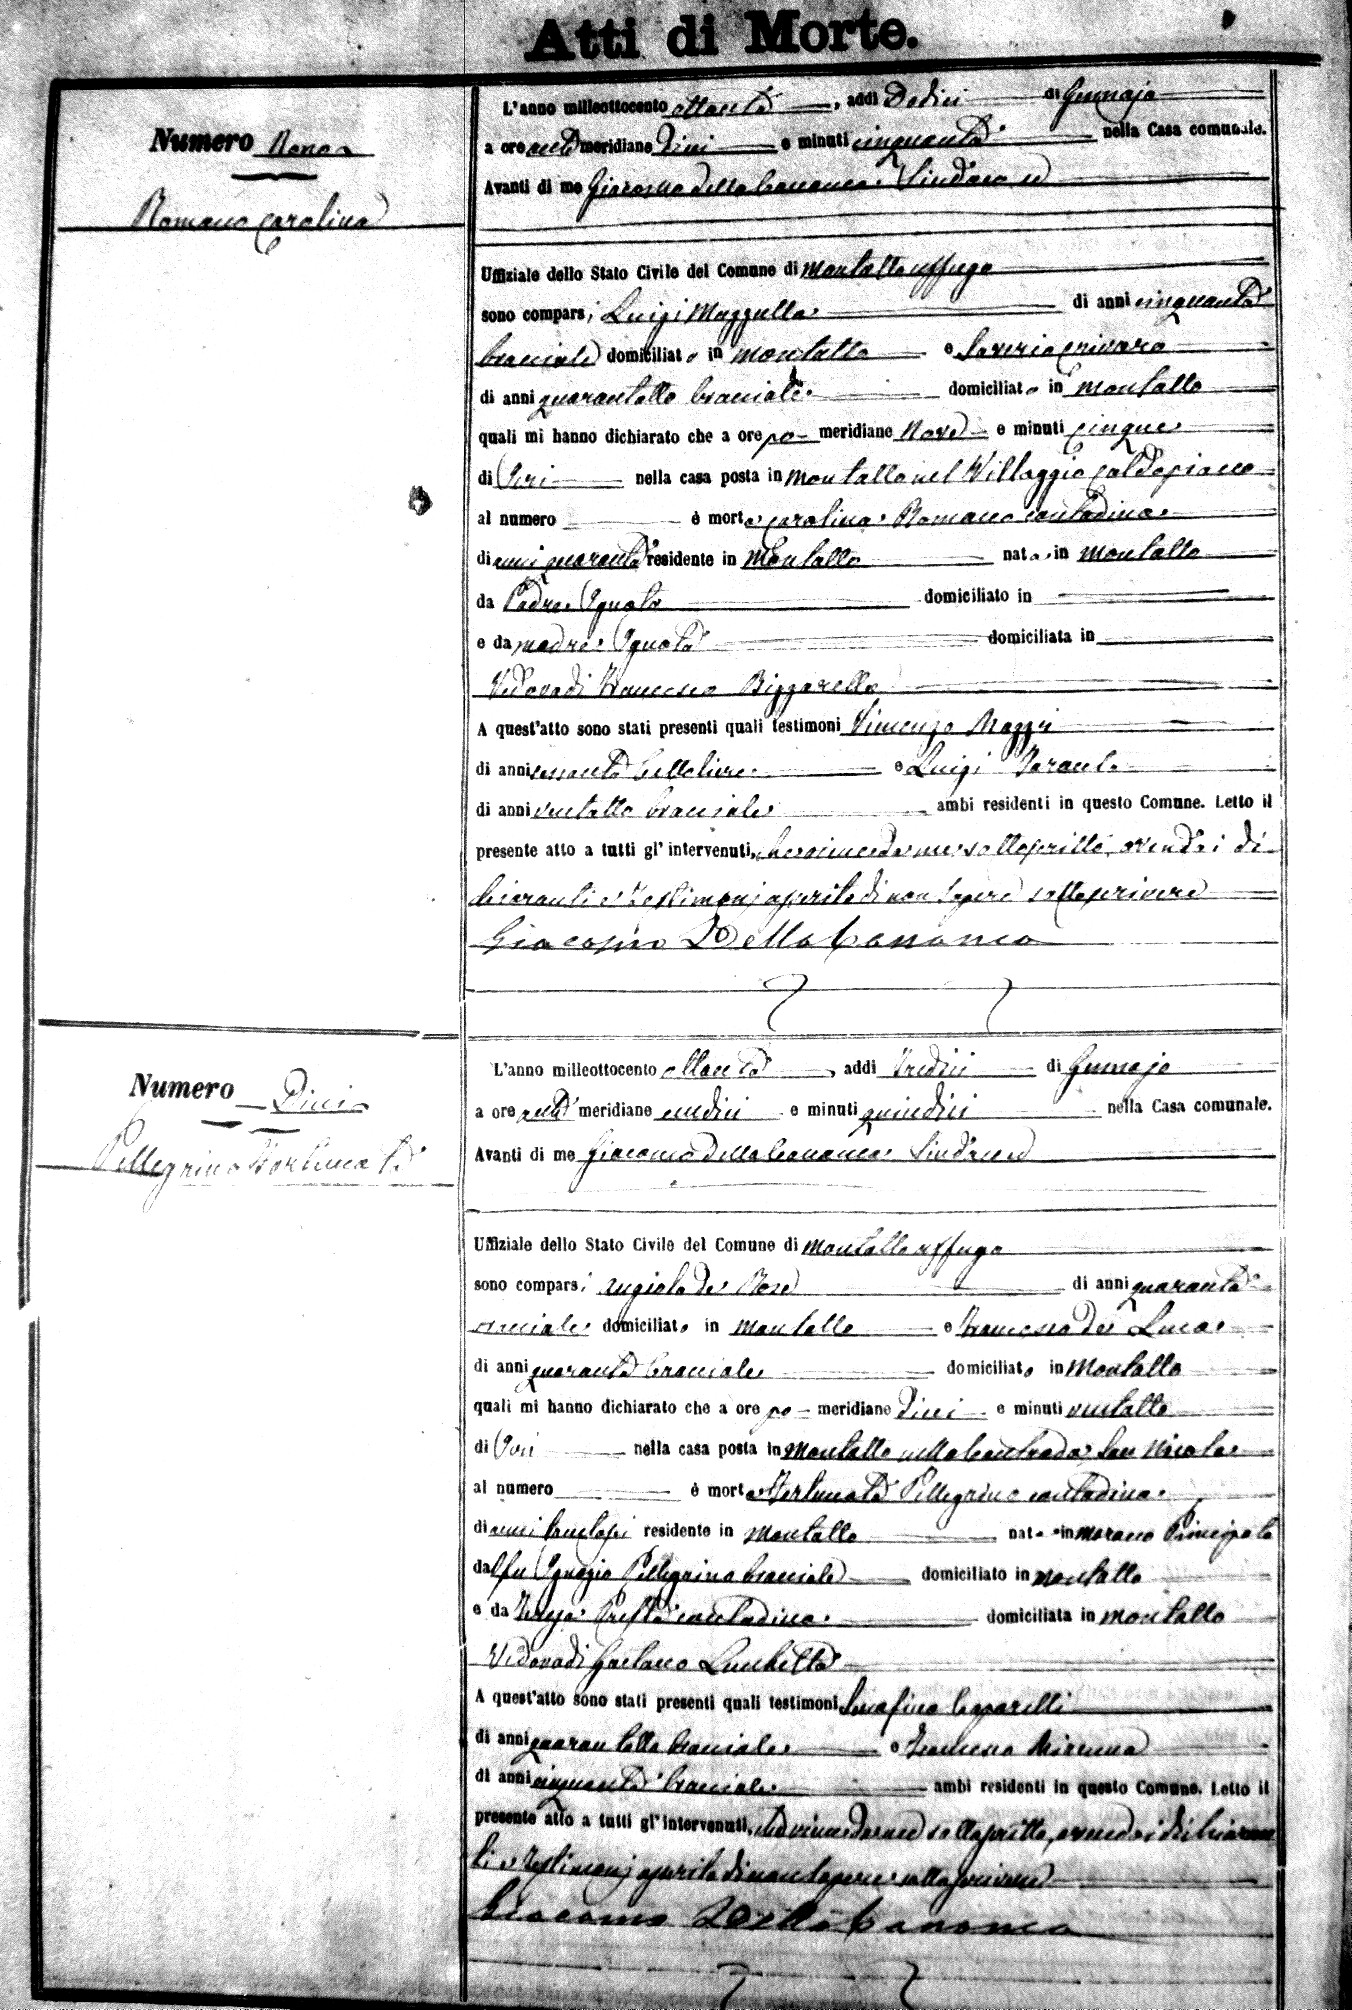 Atti di Morte.
Numero Nono
Romano Carolina
L'anno milleottocento ottanta, addì Dodici di Gennajo
a ore anti meridiane Dieci e minuti cinquanta nella Casa comunale.
Avanti di me Giacomo della Cananea Sindaco ed
Uffiziale dello Stato Civile del Comune di Montalto uffugo
sono comparsi Luigi Mazzulla di anni cinquanta
bracciale domiciliato in Montalto e Saverio Crivaro
di anni quarantotto bracciale domiciliato in Montalto
quali mi hanno dichiarato che a ore po meridiane Nove e minuti cinque
di Ieri nella casa posta in Montalto nel Villaggio Caldopiano
al numero è morta Carolina Romano contadina
di anni quaranta residente in Montalto nata in Montalto
da Padre Ignoto domiciliato in
e da madre Ignota domiciliata in
Vedova di Francesco Bizzarello
A quest'atto sono stati presenti quali testimoni Vincenzo Mazzei
di anni sessanta e Luigi
di anni ventotto bracciale ambi residenti in questo Comune. Letto il
presente atto a tutti gl'intervenuti, sottoscritto, avendo i di
chiaranti e Testimonj asserito di non sapere sottoscrivere
Giacomo Della Cananea
Numero Dieci
Pellegrino Fortunata
L'anno milleottocento ottanta, addì Tredici di Gennajo
a ore anti meridiane undici e minuti quindici nella Casa comunale.
Avanti di me Giacomo della Cananea Sindaco ed
Uffiziale dello Stato Civile del Comune di Montalto uffugo
sono comparsi Angiolo de Rose di anni quaranta
bracciale domiciliato in Montalto e Francesco de Luca
di anni quaranta bracciale domiciliato in Montalto
quali mi hanno dichiarato che a ore po meridiane Dieci e minuti ventotto
di Ieri nella casa posta in Montalto nella Contrada San Nicola
al numero è morta Fortunata Pellegrino contadina
di anni residente in Montalto nata in Marano Principato
dal fu Ignazio Pellegrino bracciale domiciliato in Montalto
e da Teresa Presta contadina domiciliata in Montalto
Vedova di Gaetano Lanchetta
A quest'atto sono stati presenti quali testimoni Serafino Caparelli
di anni quarantotto bracciale e Francesco
di anni cinquanta bracciale ambi residenti in questo Comune. Letto il
presente atto a tutti gl'intervenuti, sottoscritto, avendo i dichiaran
ti e Testimonj asserito di non sapere sottoscrivere
Giacomo Della Cananea